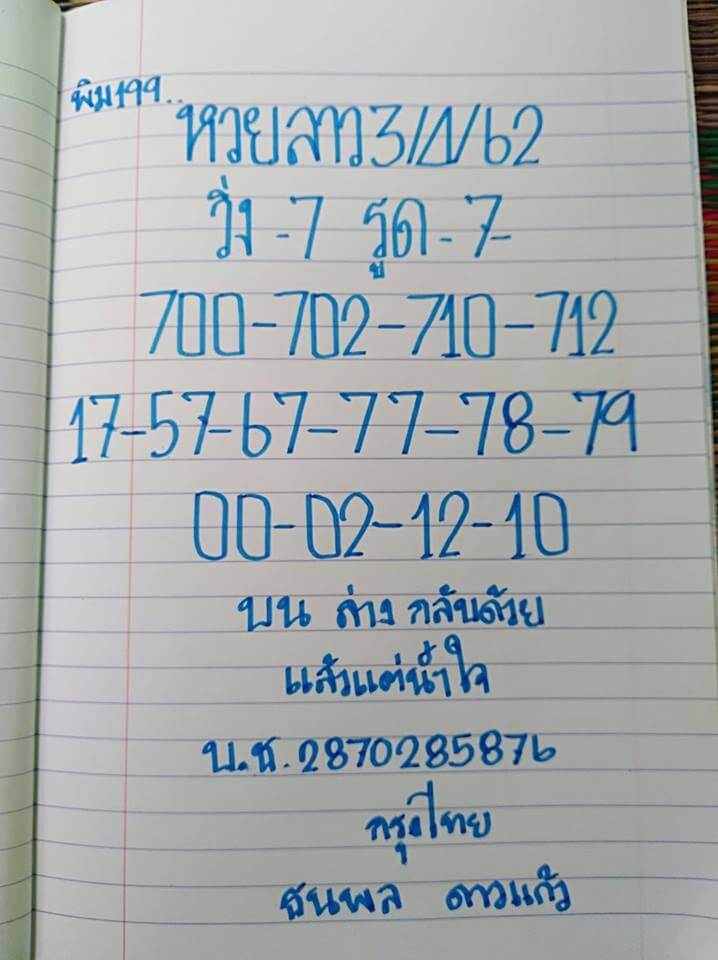 พิม199..
หวยลาว3/1/62
วิ่ง-7 รูด-7-
700-702-710-712
17-57-67-77-78-79
00-02-12-10
บน ล่าง กลับด้วย
แล้วแต่น้ำใจ
บ.ช.2870285876
กรุงไทย
ธนพล ดาวแก้ว